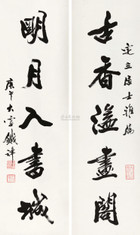 古香溢畫閣
定三居士雅属
明月入書城
庚午大雪 鐵